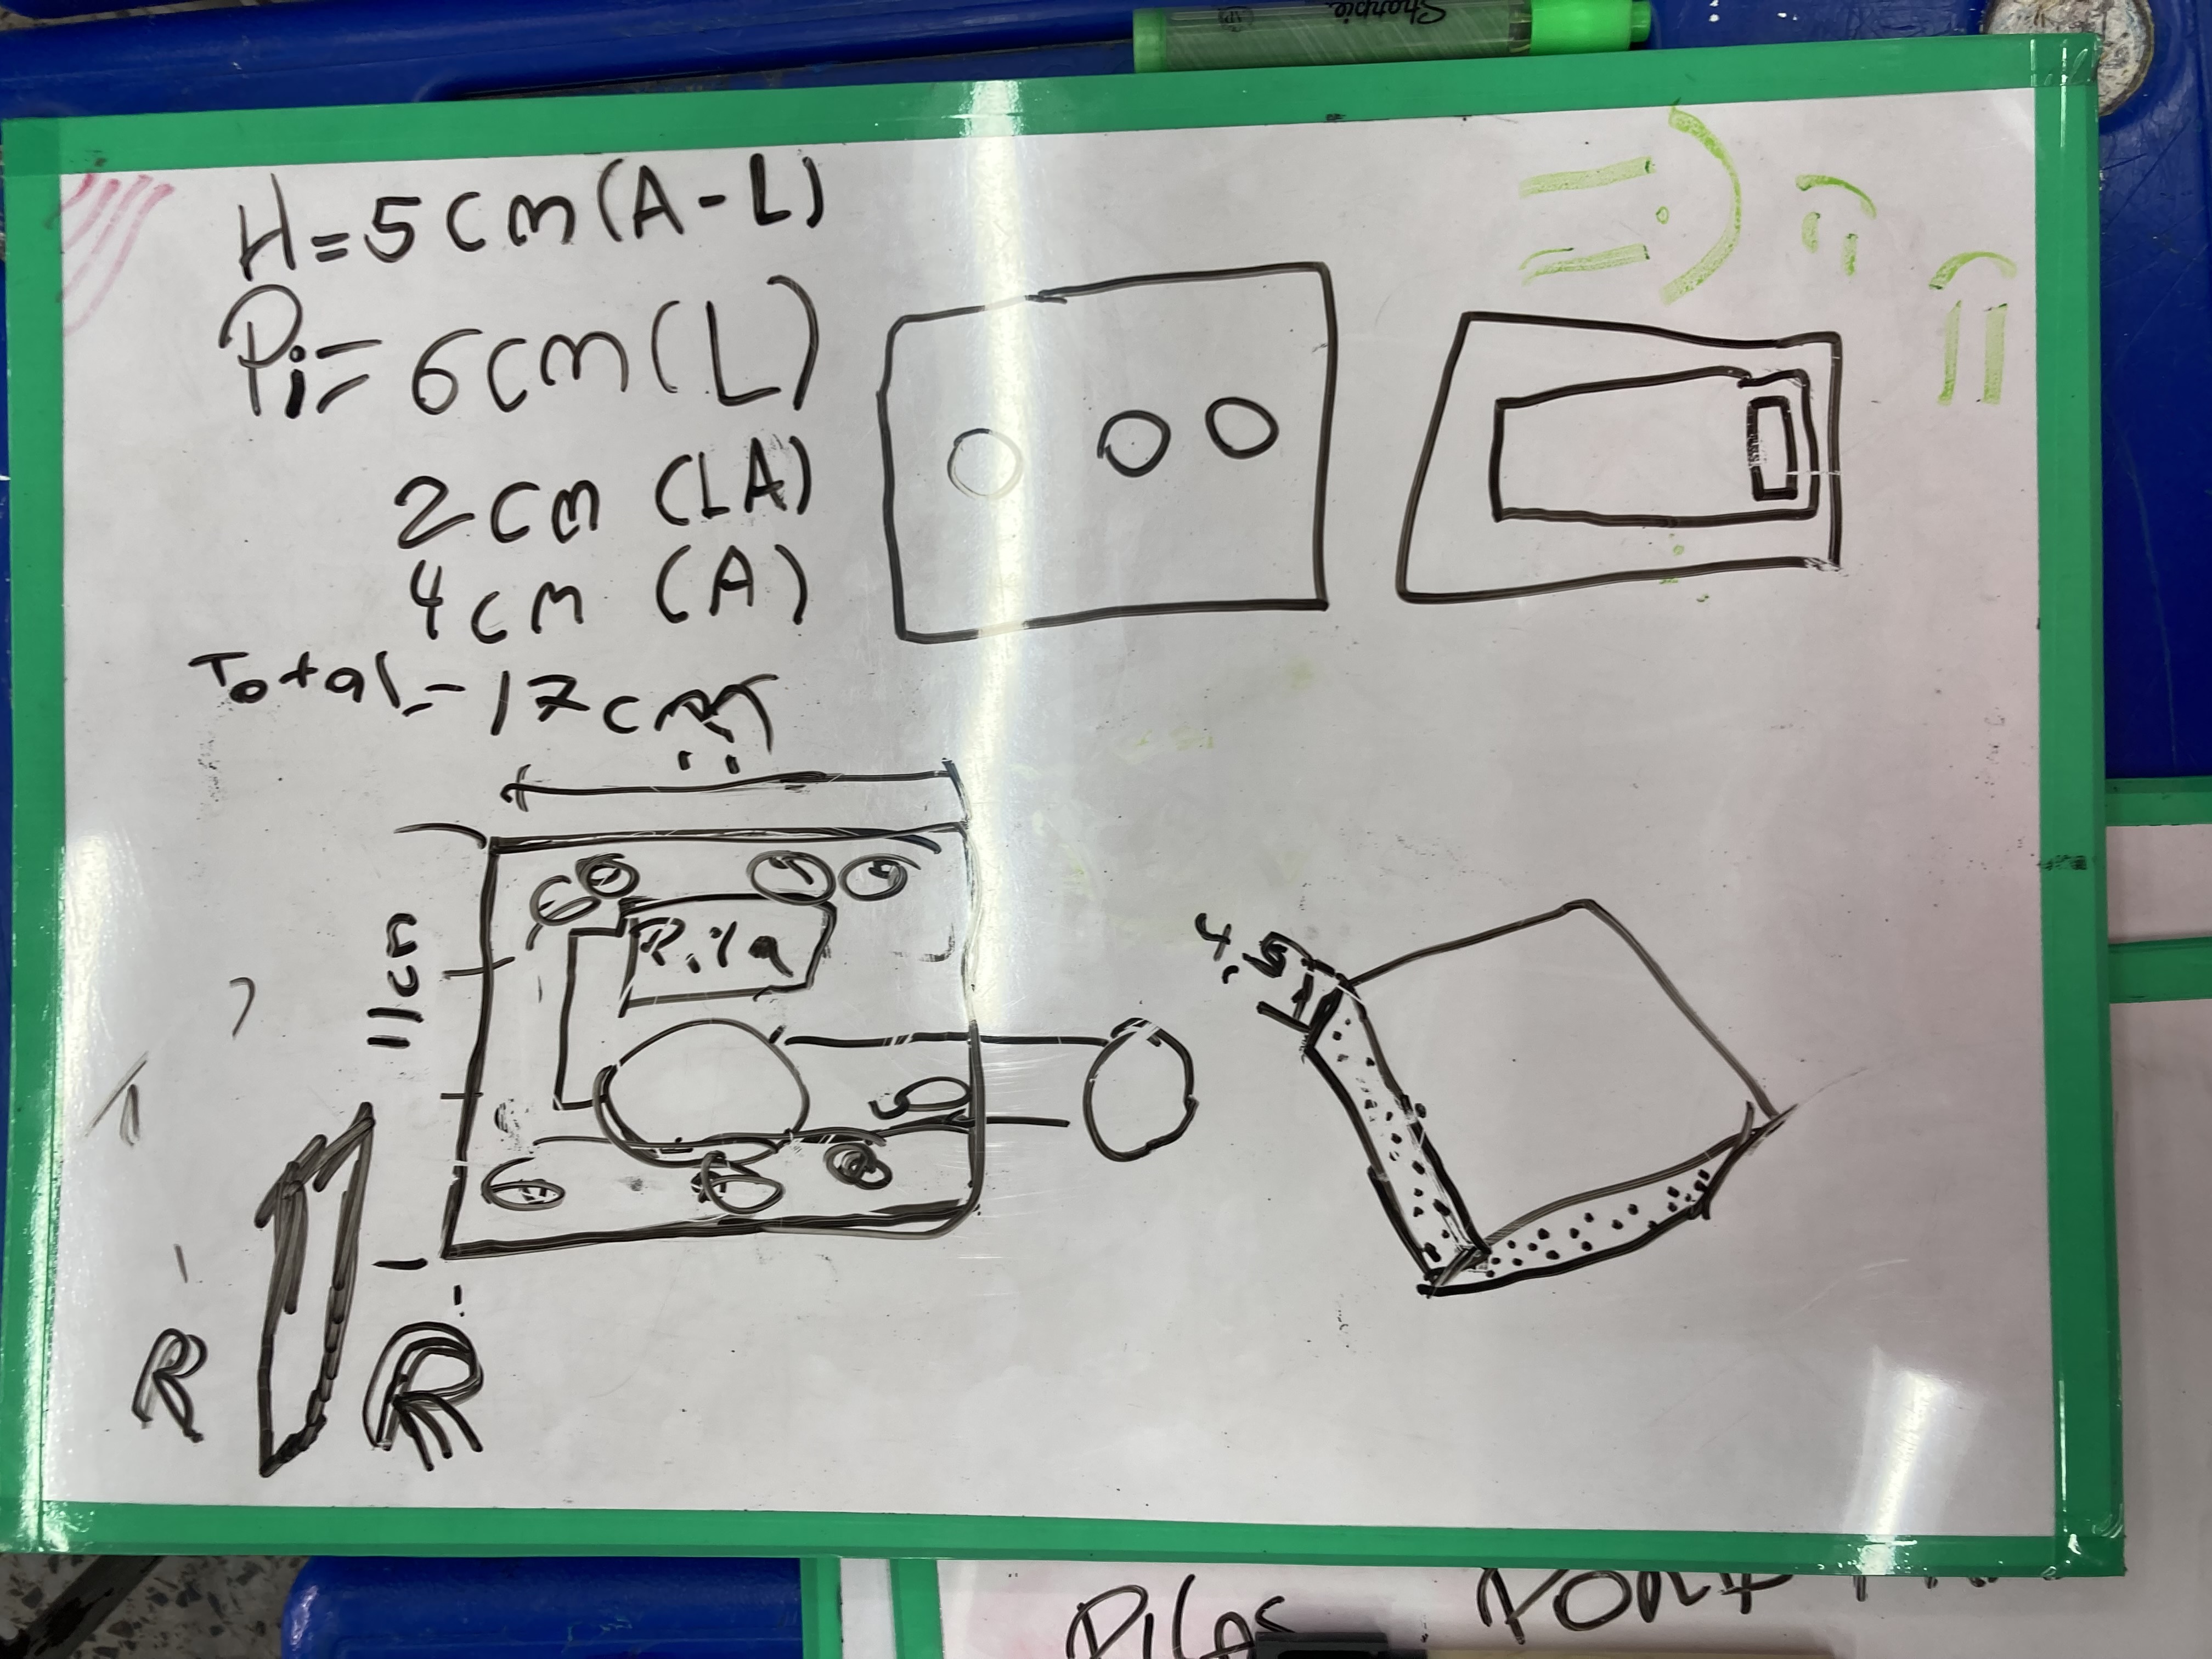 H = 5cm (A-L)
Pi = 6cm (L)
2cm (LA)
4cm (A)
Total - 17cm
11cm
Pila
R
R
Sharpie